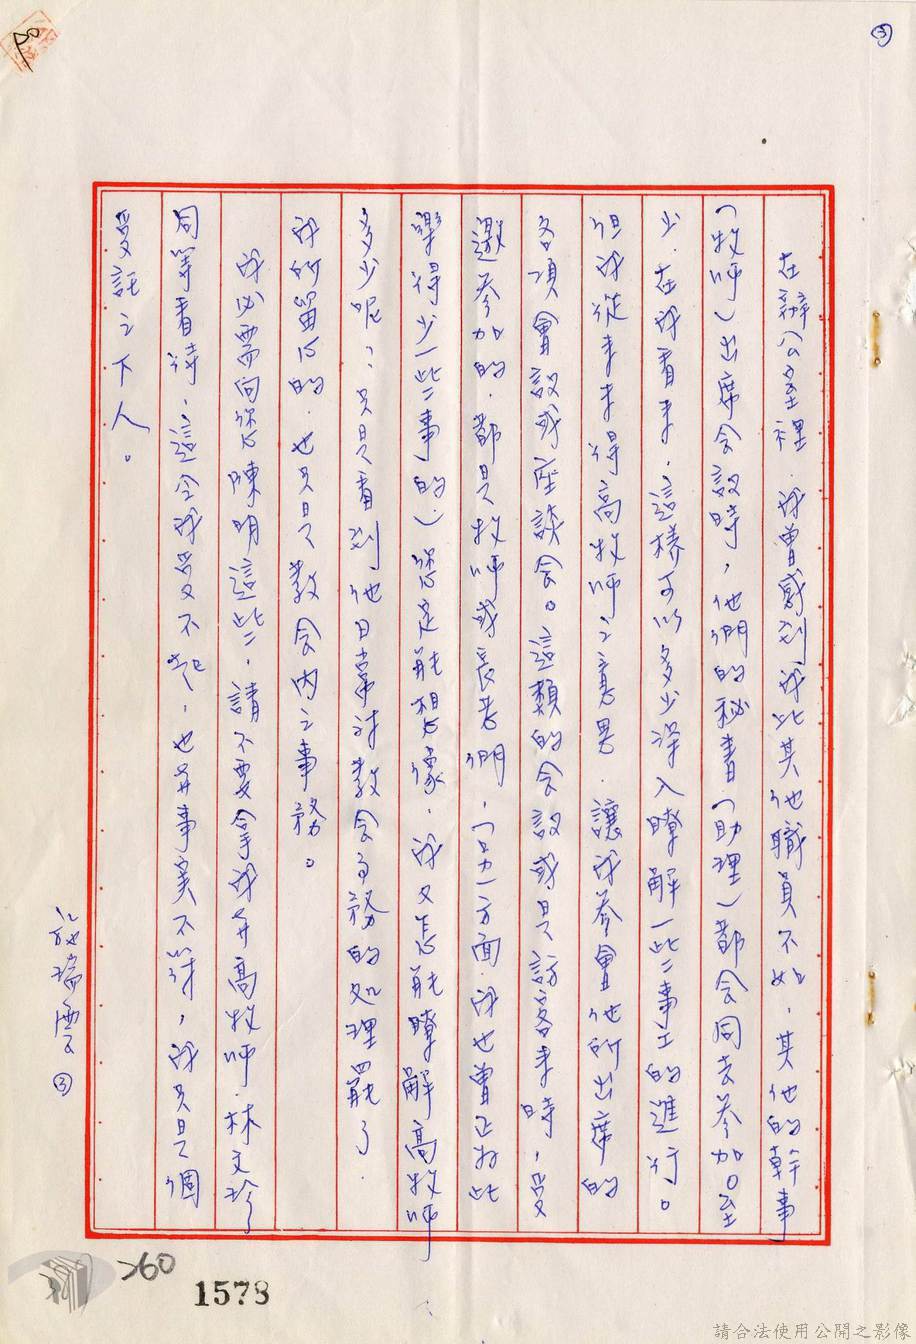 ③
在辦公室裡．我曾感到我比其他職員不如，其他的幹事
（牧師）出席会議時，他們的秘書（助理）都会同去參加。至
少．在我看來．這樣可以多少深入瞭解一些事工的進行。
但我從未得高牧師之意思．讓我參與他所出席的
各項會議或座談会。這類的会議或是訪客來時，受
邀參加的．都是牧師或長老們．（另一方面．我也曾正為此
樂得少一些事的）您定能想像．我又怎能瞭解高牧師
多少呢，只是看到他日常对教会事務的处理罷了．
我所留心的．也只是教会内之事務。
我必需向您陳明這些．請不要拿我与高牧師．林文珍
同等看待，這令我受不起，也与事實不符，我只是個
受託之下人。
施瑞雲 ③
260
1578
請合法使用公開之影像